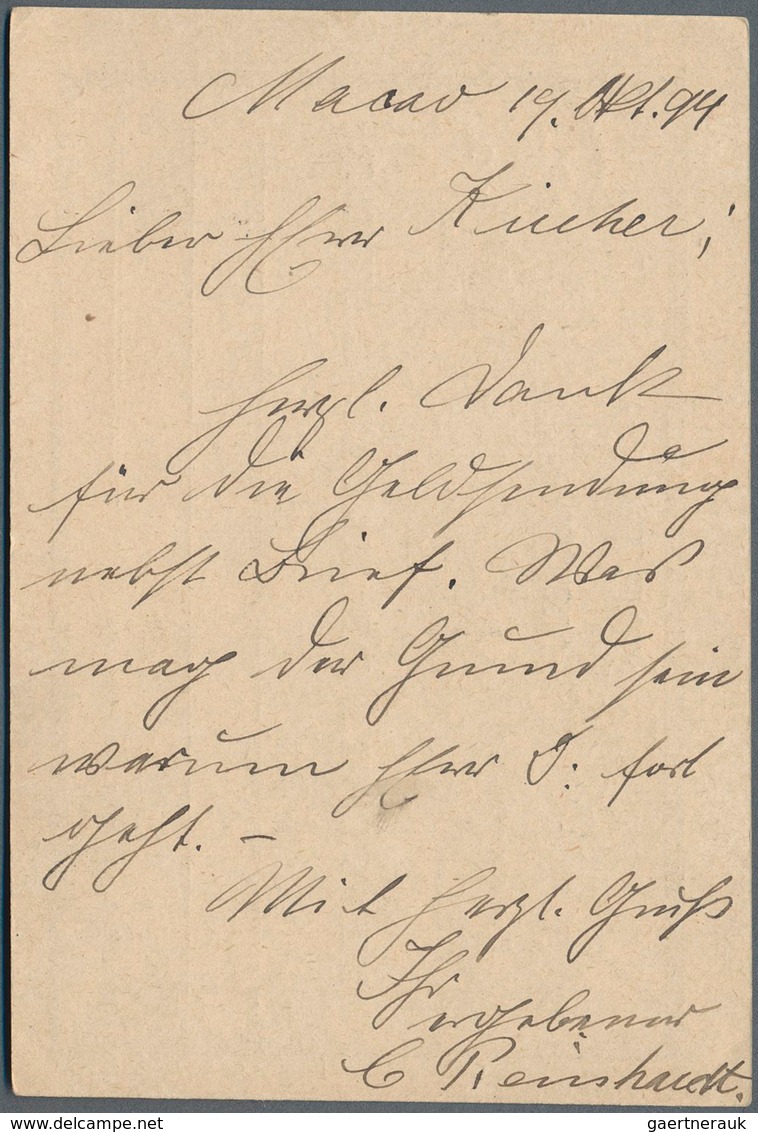 Macao 19. Okt. 94
Lieber Herr Kircher!
Herzl. Dank
für die Geldsendung
nebst Brief. Was
mag der Grund sein
warum Herr D. fort
geht. –
Mit herzl. Gruß
Ihr
ergebener
C Reinhardt.
www.delcampe.net
gaertnerauk